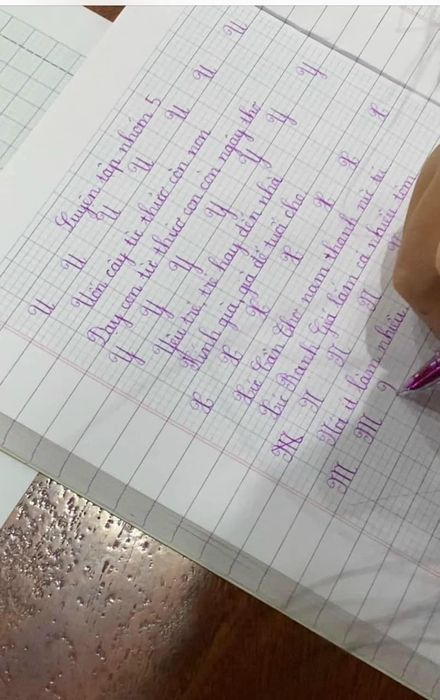 Luyện tập nhóm 5
U U U U U U U
Uốn cây từ thuở còn non
Dạy con từ thuở con còn ngây thơ
Y Y Y Y Y Y Y
Yêu trẻ, trẻ hay đến nhà
Kính già, già để tuổi cho
X X X X X X X
Xứ Cần Thơ nam thanh nữ tú
Xứ Rạch Giá lắm cá nhiều tôm
N N N N
Nói ít làm nhiều
M M